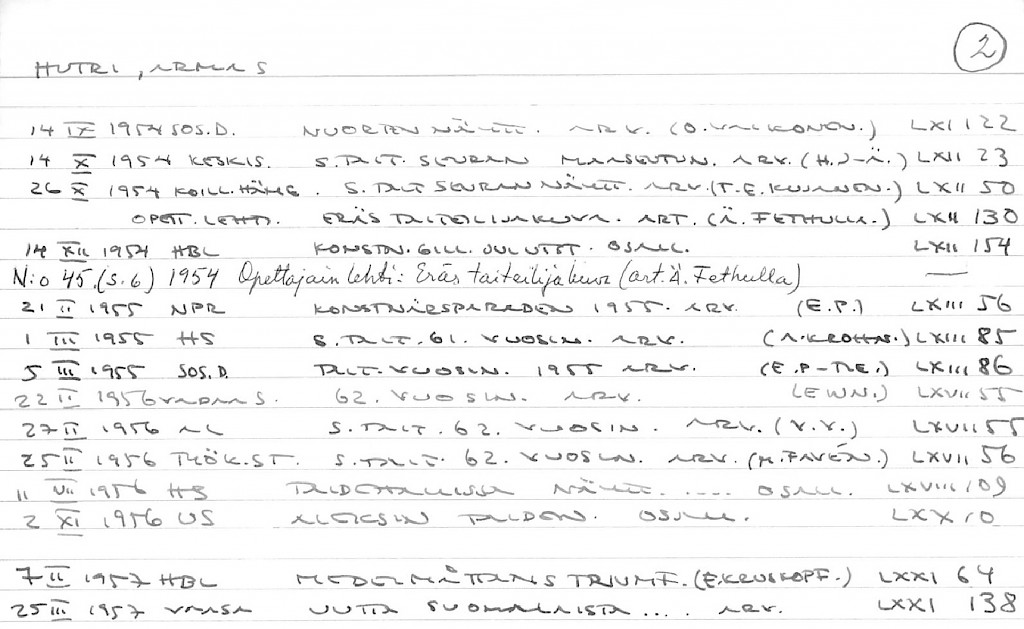 2
HUTRI, ARMAS
14 IX 1954 SOS.D. NUORTEN NÄYTT. ARV. (O. VALKONEN.) LXI 122
14 X 1954 KESKIS. S.TAIT. SEURAN MAASEUTUN. ARV. (H.J-Ä.) LXII 23
26 X 1954 KOILL.HÄME. S.TAIT SEURAN NÄYTT. ARV. (T.E. KUJANEN.) LXII 50
OPETT. LEHTI. ERÄS TAITEILIJAKUVA. ART. (Ä. FETHULLA.) LXII 130
14 XII 1954 HBL KONSTN. GILL. JULUTST. OSALL. LXII 154
N:o 45. (s. 6) 1954 Opettajain lehti: Eräs taiteilijakuva (art. Ä. Fethulla) —
21 II 1955 NPR KONSTNÄRSPARADEN 1955. ARV. (E.P.) LXIII 56
1 III 1955 HS S.TAIT. 61. VUOSIN. ARV. (A. KROHN.) LXIII 85
5 III 1955 SOS.D. TAIT. VUOSIN. 1955 ARV. (E.P-TIE.) LXIII 86
22 II 1956 VAPAA S. 62. VUOSIN. ARV. (EWN.) LXVII 55
27 II 1956 AL S.TAIT. 62. VUOSIN. ARV. (V.V.) LXVII 55
25 II 1956 TYÖK.ST. S.TAIT. 62. VUOSIN. ARV. (M. FAVÉN.) LXVII 56
11 VII 1956 HS TAIDEHALLISSA NÄYTT. .... OSALL. LXVIII 109
2 XI 1956 US ALEKSIN TAIDEN. OSALL. LXX 10
7 II 1957 HBL MEDELMÅTTANS TRIUMF. (E. KRUSKOPF.) LXXI 64
25 III 1957 VAASA UUTTA SUOMALAISTA .... ARV. LXXI 138